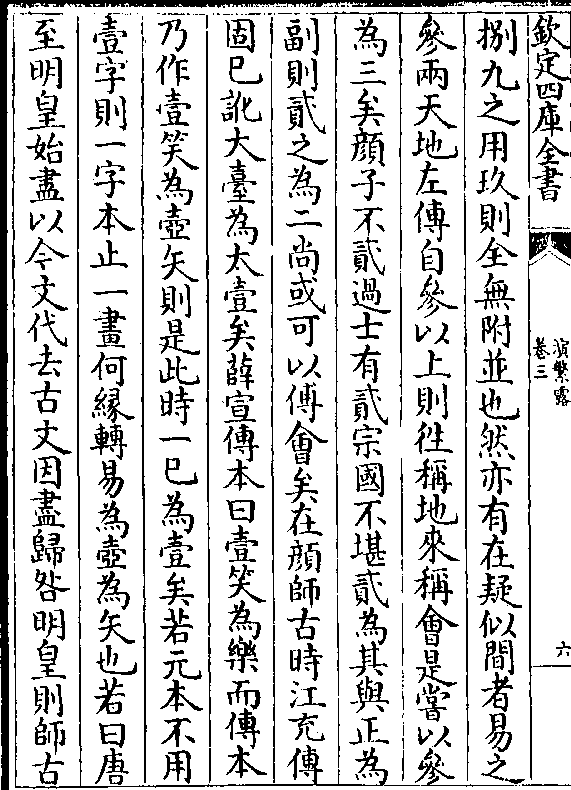 欽定四庫全書
演繁露
卷三
六
捌九之用玖則全無附並也然亦有在疑似間者易之
參兩天地左傳自參以上則徃稱地來稱會是嘗以參
為三矣顔子不貳過士有貳宗國不堪貳為其與正為
副則貳之為二尚或可以傅會矣在顔師古時江充傳
固已訛大臺為太壹矣薛宣傳本曰壹笑為樂而傳本
乃作壹笑為壺矢則是此時一已為壹矣若元本不用
壹字則一字本止一畫何縁轉易為壺為矢也若曰唐
至明皇始盡以今文代去古文因盡歸咎明皇則師古